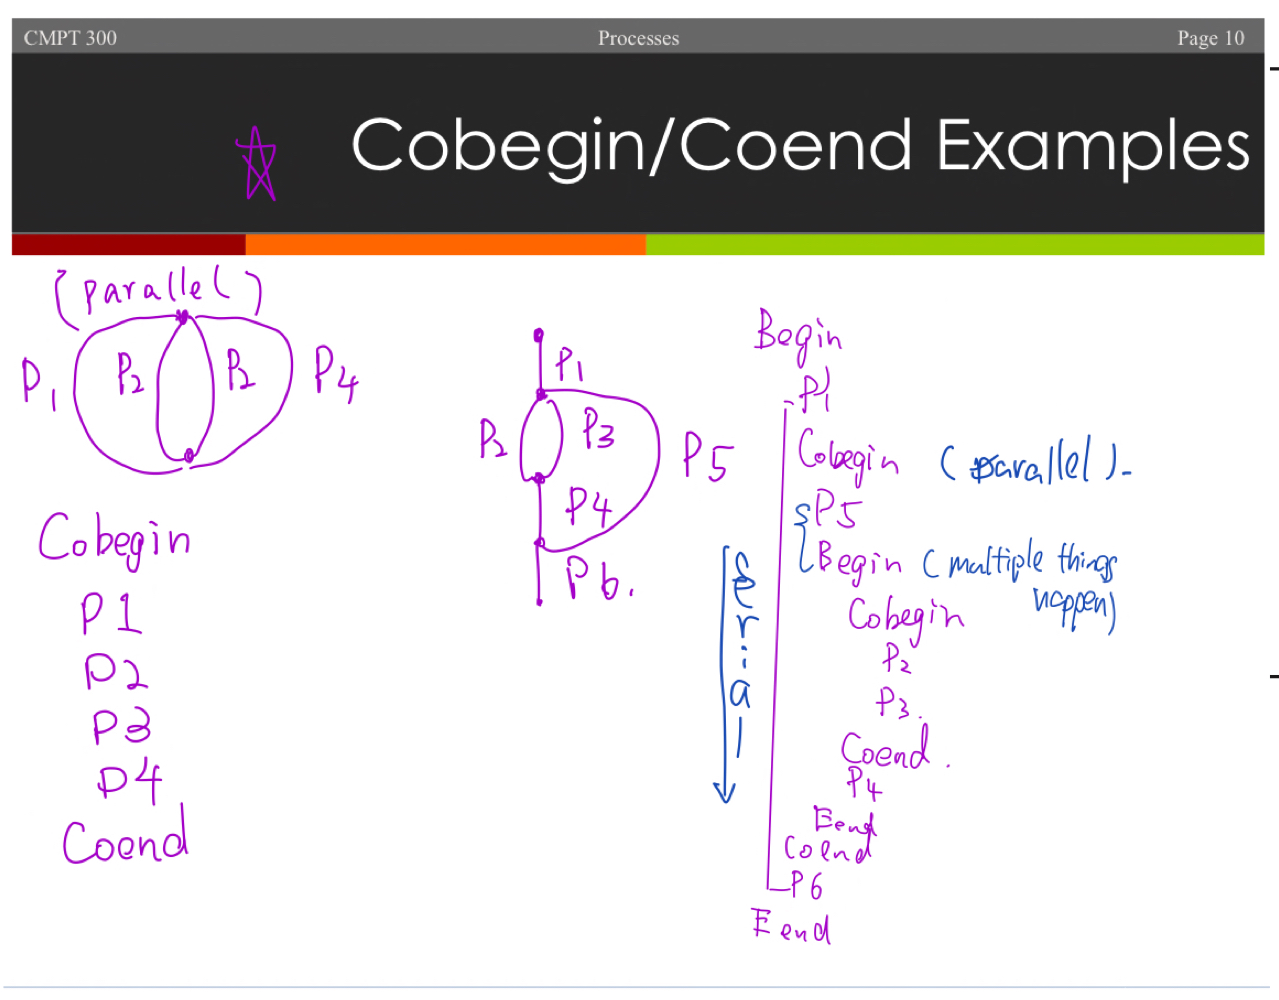 CMPT 300 Processes Page 10
Cobegin/Coend Examples
(parallel)
P1 P2 P2 P4
Cobegin
P1
P2
P3
P4
Coend
P1
P2 P3 P5
P4
P6.
Begin
P1
Cobegin (parallel).
P5
Begin (multiple things
happen)
Cobegin
P2
P3.
Coend.
P4
Eend
Coend
P6
Eend
serial